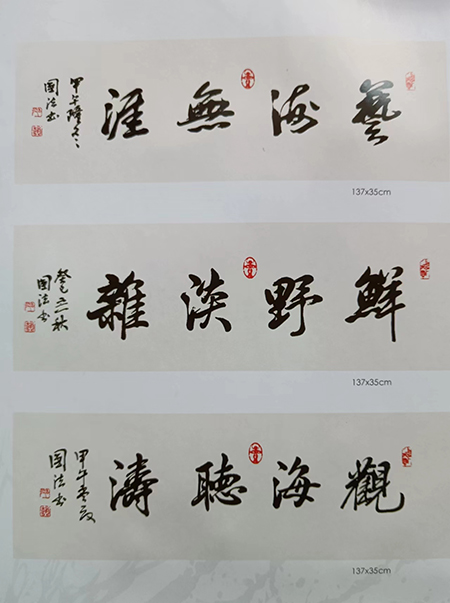 藝海無涯
甲午隆冬
國法书
137x35cm
鮮野淡雜
癸巳秋
國法书
137x35cm
觀海聽濤
甲午
國法书
137x35cm